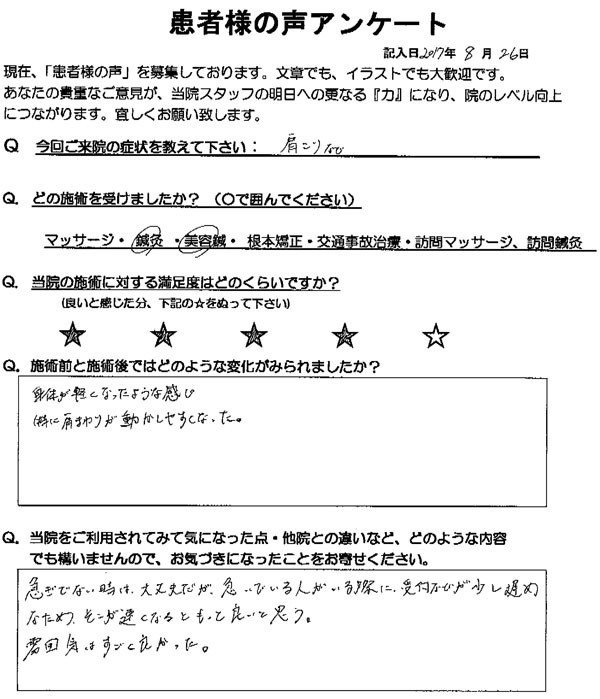 患者様の声アンケート
記入日2017年 8月 26日
現在、「患者様の声」を募集しております。文章でも、イラストでも大歓迎です。
あなたの貴重なご意見が、当院スタッフの明日への更なる『力』になり、院のレベル向上
につながります。宜しくお願い致します。
Q 今回ご来院の症状を教えて下さい： 肩こりなど
Q. どの施術を受けましたか？（〇で囲んでください）
マッサージ・鍼灸・美容鍼・根本矯正・交通事故治療・訪問マッサージ、訪問鍼灸
Q. 当院の施術に対する満足度はどのくらいですか？
(良いと感じた分、下記の☆をぬって下さい)
★ ★ ★ ★ ☆
Q. 施術前と施術後ではどのような変化がみられましたか？
身体が軽くなったような感じ
特に肩まわりが動かしやすくなった。
Q. 当院をご利用されてみて気になった点・他院との違いなど、どのような内容
でも構いませんので、お気づきになったことをお寄せください。
急ぎでない時は、大丈夫だが、急いでいる人がいる際に、受付などが少し遅め
なため、そこが速くなるともっと良いと思う。
雰囲気はすごく良かった。